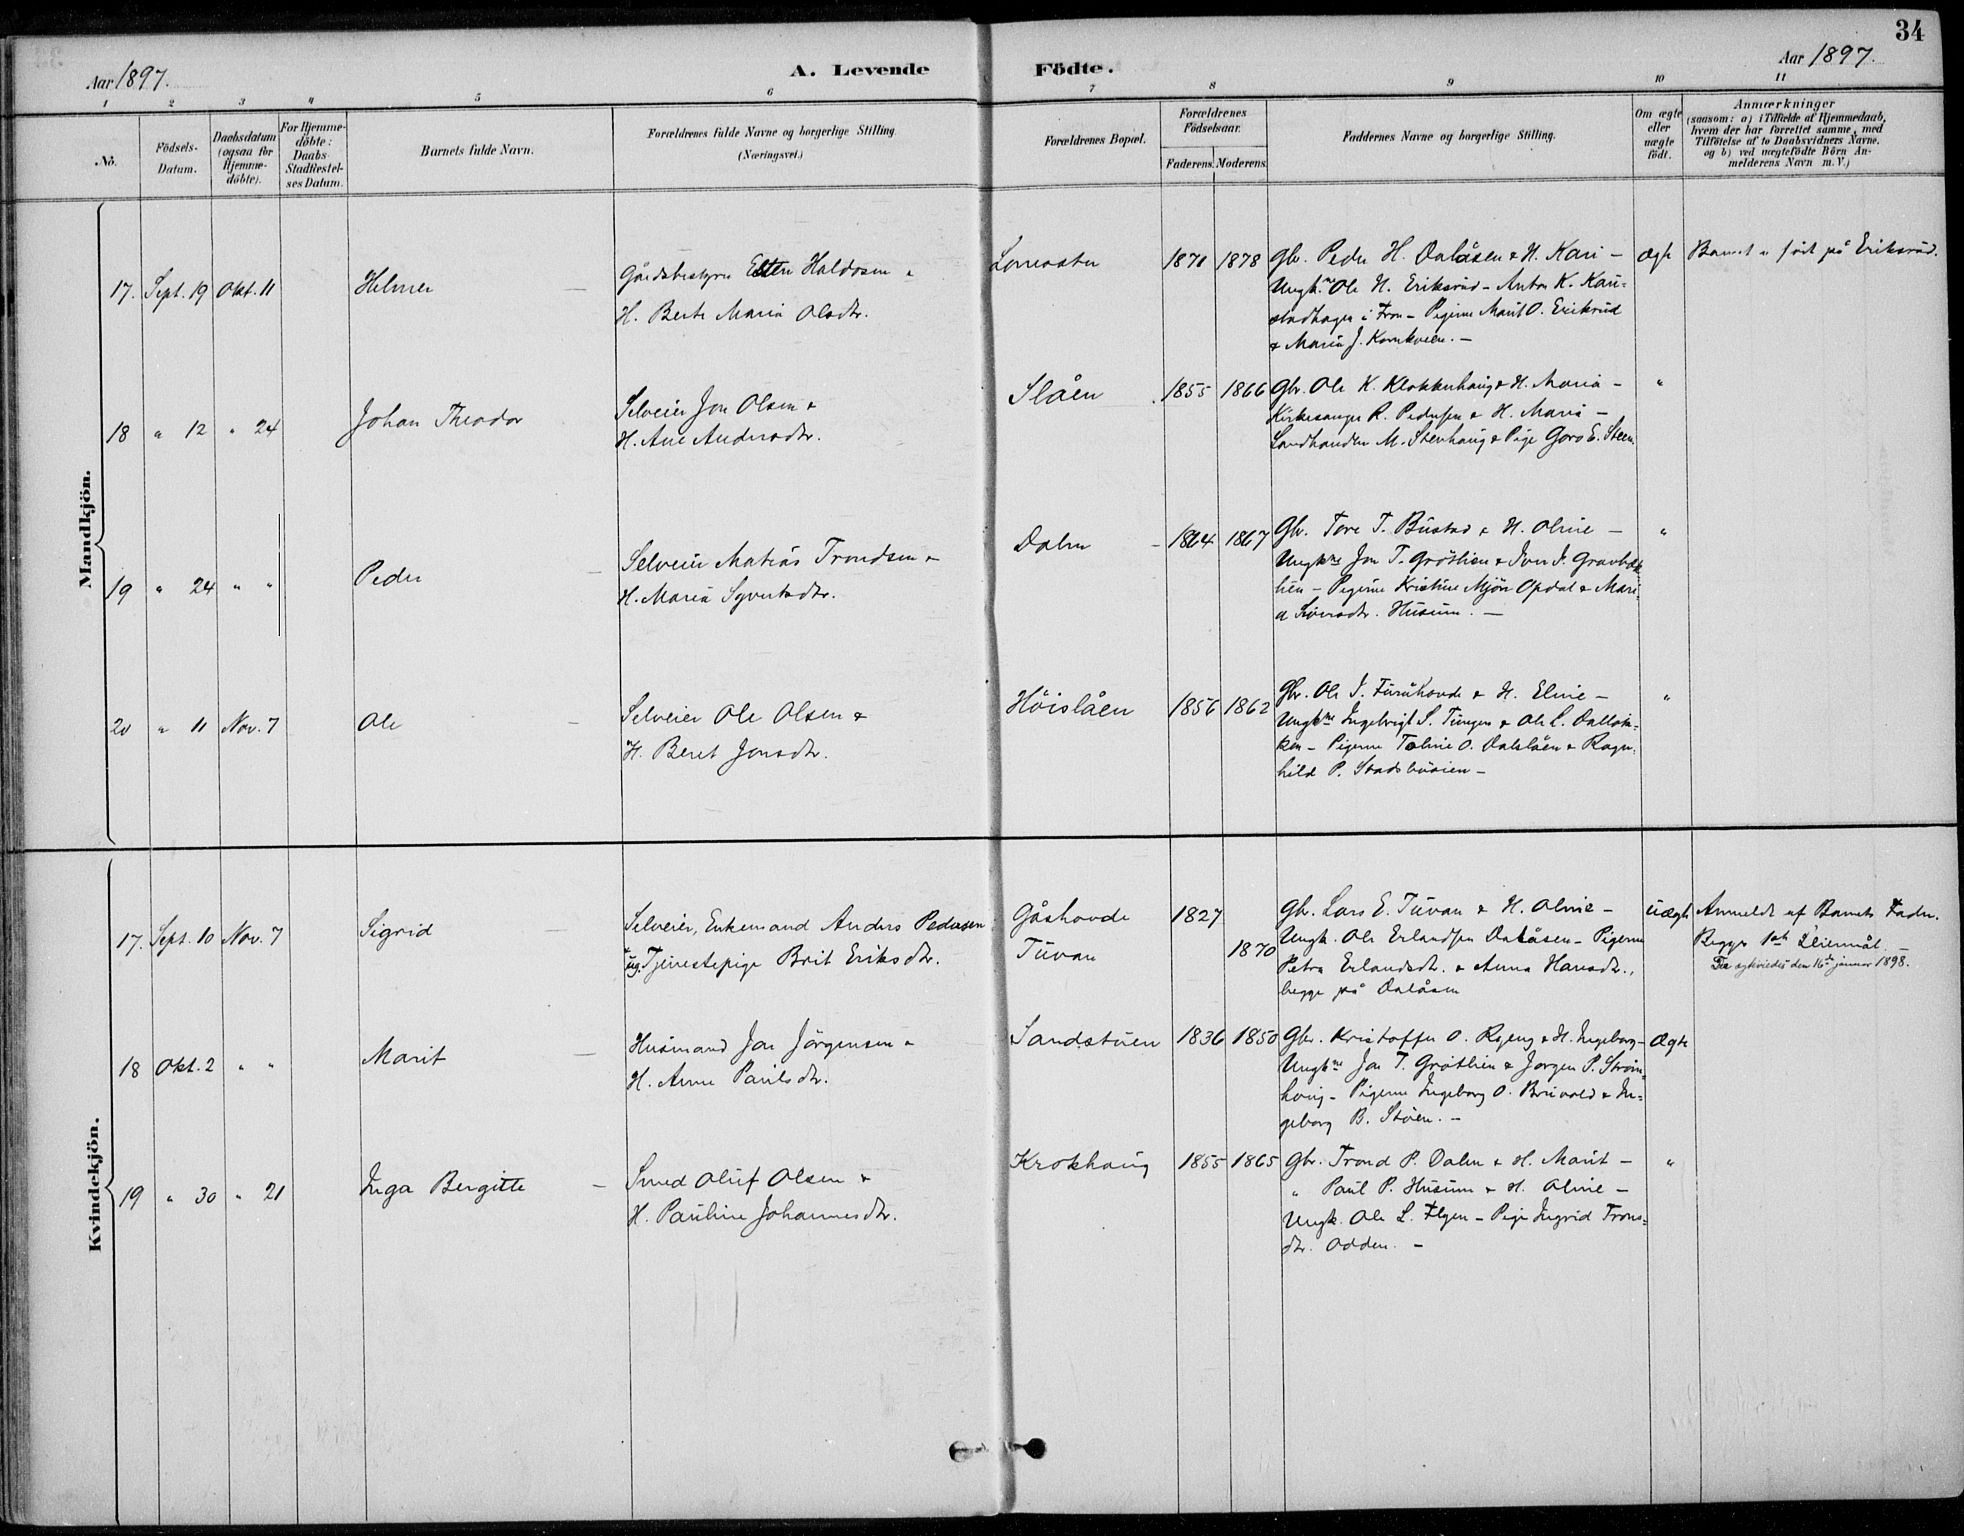 34
Aar 1897.
A. Levende Födte.
Aar 1897.
1 2 3 4 5 6 7 8 9 10 11
No.
Födsels-
Datum.
Daabsdatum
(ogsaa for
Hjemme-
döbte).
For Hjemme-
döbte:
Daabs-
Stadfestel-
ses Datum.
Barnets fulde Navn.
Forældrenes fulde Navne og borgerlige Stilling.
(Næringsvei.)
Forældrenes Bopæl.
Forældrenes
Födselsaar.
Faderens. Moderens.
Faddernes Navne og borgerlige Stilling.
Om ægte
eller
uægte
födt.
Anmærkninger
(saasom: a) i Tilfælde af Hjemmedaab,
hvem der har forrettet samme, med
Tilföielse af to Daabsvidners Navne,
og b) ved uægtefödte Börn An-
melderens Navn m. V.)
Mandkjön.
17. Sept. 19 Okt. 11
Helmer
Gårdsbestyrer Esten Haldosen &
H. Berte Maria Olsdtr.
1871 1878
Gbr. Peder H. Dalåsen & H. Kari –
Ungk. Ole H. Eriksrud – Anton K. Kari=
stadhagen i Fron – Pigerne Marit O. Eriksrud
& Maria J. Kornkveen. –
Ægte
Barnet er född på Eriksrud.
18 " 12 " 24
Johan Theodor
Selveier Jon Olsen &
H. Ane Andersdtr.
Slåen
1855 1866
Gbr. Ole K. Klokkerhaug & H. Maria –
Kirkesanger R. Pedersen & H. Maria –
Landhandler M. Stenhaug & Pige Goro E. Steen.
"
19 " 24 " "
Peder
Selveier Matias Trondsen &
H. Maria Syvertsdtr.
Dalen
1864 1867
Gbr. Tore T. Bustad & H. Oline –
Ungkne Jon T. Grötlien & Iver I. Gravbæk
lien – Pigerne Kristine Mjöen Opdal & Mari=
a Siversdtr. Husum. –
"
20 " 11 Nov. 7
Ole
Selveier Ole Olsen &
H. Beret Jonsdtr.
Höislåen
1856 1862
Gbr. Ole I. Furuhovde & H. Eline –
Ungkne Ingebrigt S. Tungen & Ole L. Dallök=
ken – Pigerne Toline O. Dalslåen & Ragn=
hild P. Stadsbuöien –
"
Kvindekjön.
17. Sept. 10 Nov. 7
Sigrid
Selveier, Enkemand Anders Pedersen
& ug. Tjenestepige Brit Eriksdtr.
Gåshovde
Tuvan
1827
1870
Gbr. Lars E. Tuvan & H. Oline –
Ungk. Ole Erlandsen Dalåsen – Pigerne
Petra Erlandsdtr. & Anna Hansdtr.,
begge på Dalåsen
Uægte
Anmeldt af Barnets Fader.
Begges 1ste Leiermål. –
den 16de januar 1898.
18 Okt. 2 " "
Marit
Husmand Jon Jörgensen &
H. Anne Paulsdtr.
Sandstuen
1836 1850
Gbr. Kristoffer O. Ryeng & H. Ingeborg –
Ungkne Jon T. Grötlien & Jorgen P. Ström=
houg – Pigerne Ingeborg O. Bruvold & In=
geborg B. Stöen. –
Ægte
19 " 30 " 21
Inga Bergitte
Smed Oluf Olsen &
H. Pauline Johannesdtr.
Krokhaug
1855 1865
Gbr. Trond P. Dalen & H. Marit –
" Paul P. Husum & H. Oline –
Ungk. Ole L. Elgen – Pige Ingrid Trons=
dtr. Odden. –
"